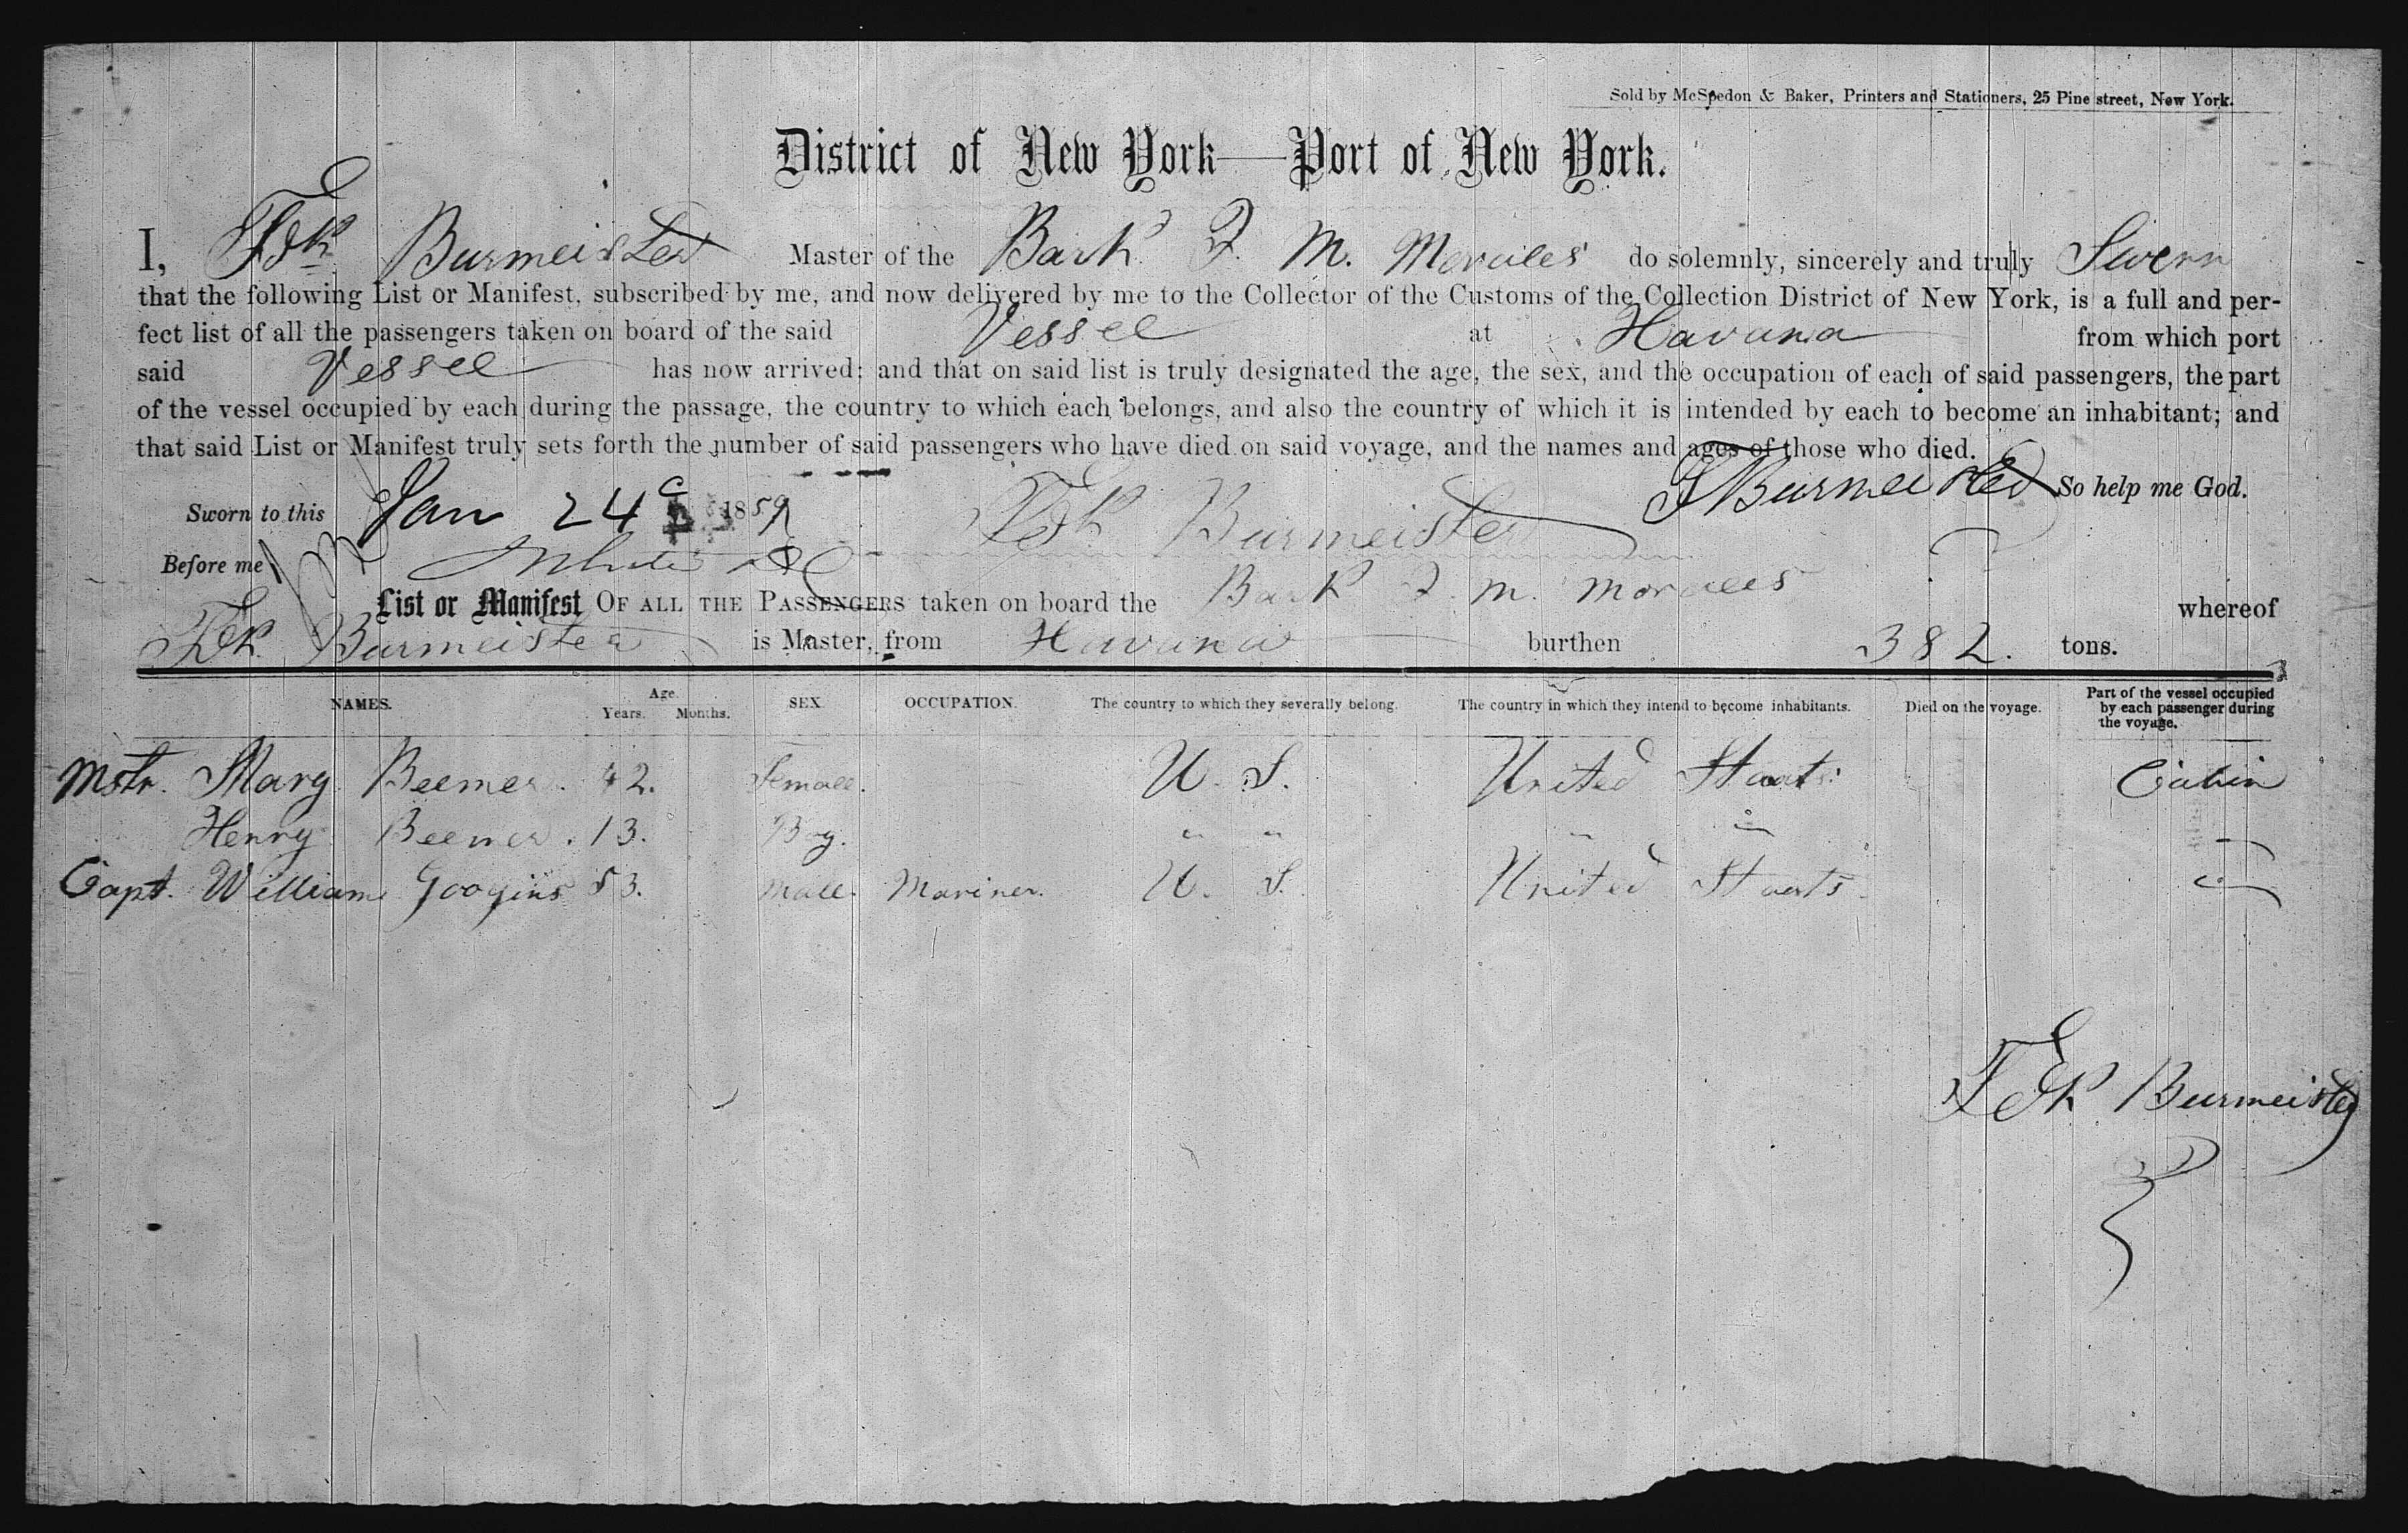 Sold by McSpedon & Baker, Printers and Stationers, 25 Pine street, New York.
District of New York—Port of New York.
I, Fdk Burmeister Master of the Bark F. M. Morales do solemnly, sincerely and truly Swern
that the following List or Manifest, subscribed by me, and now delivered by me to the Collector of the Customs of the Collection District of New York, is a full and per-
fect list of all the passengers taken on board of the said Vessel at Havana from which port
said Vessel has now arrived: and that on said list is truly designated the age, the sex, and the occupation of each of said passengers, the part
of the vessel occupied by each during the passage, the country to which each belongs, and also the country of which it is intended by each to become an inhabitant; and
that said List or Manifest truly sets forth the number of said passengers who have died on said voyage, and the names and ages of those who died.
Sworn to this Jan 24 1859 Fdk Burmeister F Burmeister So help me God.
Before me
List or Manifest OF ALL THE PASSENGERS taken on board the Bark F. M. Morales whereof
Fdk. Burmeister is Master, from Havana burthen 382. tons.
NAMES. Age. Years. Months. SEX. OCCUPATION. The country to which they severally belong. The country in which they intend to become inhabitants. Died on the voyage. Part of the vessel occupied by each passenger during the voyage.
Mstr. Mary Beemer. 42. Female. U. S. United Staats. Cabin
Henry Beemer. 13. Boy. " " " " "
Capt. William Googins 53. Male. Mariner. U. S. United Staats. "
Fdk Burmeister